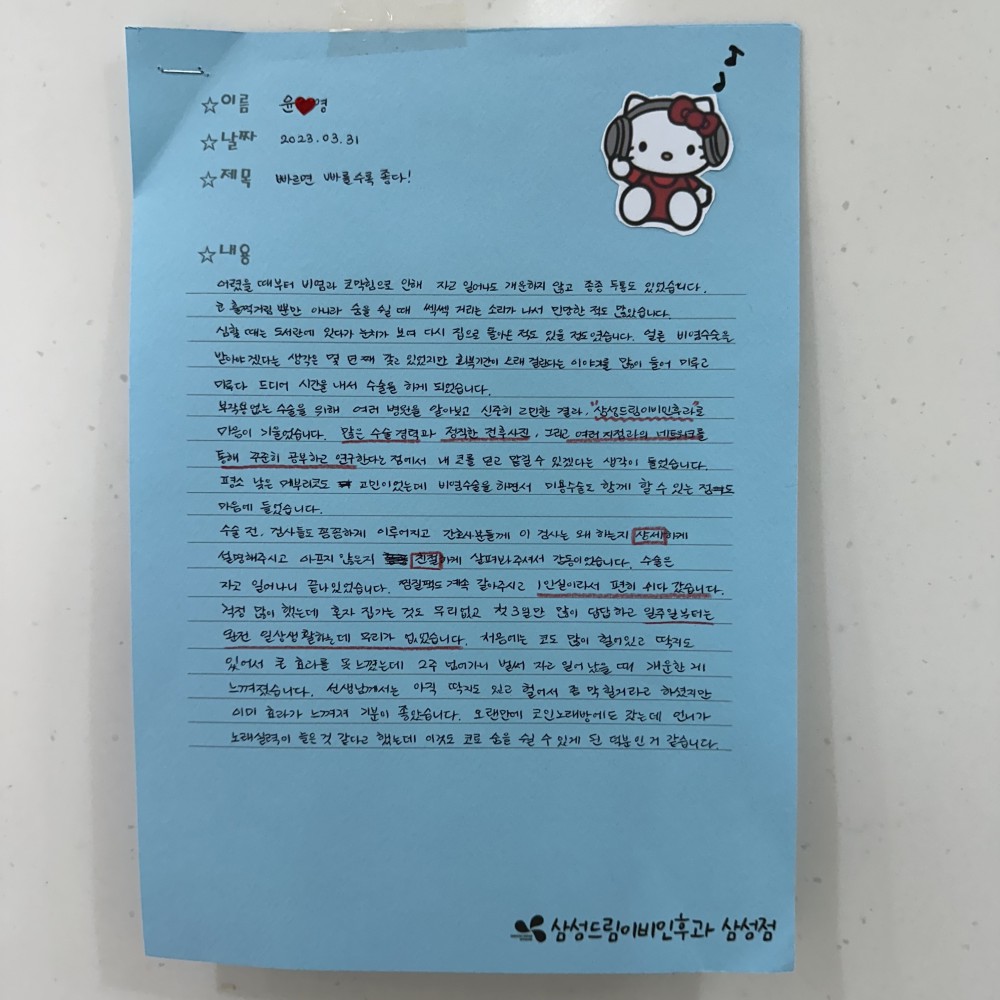 ☆이름 윤♥영
☆날짜 2023.03.31
☆제목 빠르면 빠를수록 좋다!
☆내용
어렸을 때부터 비염과 코막힘으로 인해 자고 일어나도 개운하지 않고 종종 두통도 있었습니다.
코 훌쩍거릴 뿐만 아니라 숨을 쉴 때 쌕쌕 거리는 소리가 나서 민망한 적도 많았습니다.
심할 때는 도서관에 있다가 눈치가 보여 다시 집으로 돌아온 적도 있을 정도였습니다. 얼른 비염수술을
받아야겠다는 생각은 몇 년 째 갖고 있었지만 회복기간이 오래 걸린다는 이야기를 많이 들어 미루고
미루다 드디어 시간을 내서 수술을 하게 되었습니다.
부작용없는 수술을 위해 여러 병원을 알아보고 신중히 고민한 결과, "삼성드림이비인후과"로
마음이 기울었습니다. 많은 수술 경력과 정직한 전후사진, 그리고 여러 지점과의 네트워크를
통해 꾸준히 공부하고 연구한다는 점에서 내 코를 믿고 맡길 수 있겠다는 생각이 들었습니다.
평소 낮은 매부리코도 고민이었는데 비염수술을 하면서 미용수술도 함께 할 수 있는 점도
마음에 들었습니다.
수술 전, 검사들도 꼼꼼하게 이루어지고 간호사분들께 이 검사는 왜 하는지 상세하게
설명해주시고 아프지 않은지 친절하게 살펴봐주셔서 감동이었습니다. 수술은
자고 일어나니 끝나있었습니다. 찜질팩도 계속 갈아주시고 1인실이라서 편히 쉬다 갔습니다.
걱정 많이 했는데 혼자 집가는 것도 무리없고 첫 3일만 많이 답답하고 일주일부터는
완전 일상생활하는데 무리가 없었습니다. 처음에는 코도 많이 헐어있고 딱지도
있어서 큰 효과를 못 느꼈는데 2주 넘어가니 벌써 자고 일어났을 때 개운한 게
느껴졌습니다. 선생님께서는 아직 딱지도 있고 헐어서 좀 막힐거라고 하셨지만
이미 효과가 느껴져 기분이 좋았습니다. 오랜만에 코인노래방에도 갔는데 언니가
노래실력이 늘은 것 같다고 했는데 이것도 코로 숨을 쉴 수 있게 된 덕분인 거 같습니다.
삼성드림이비인후과 삼성점